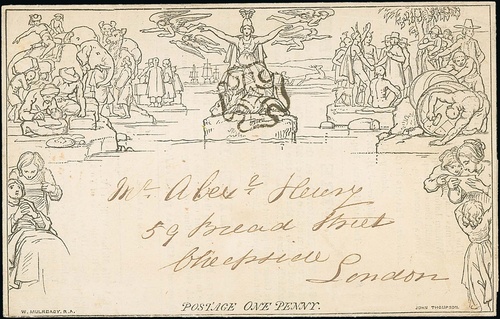 Mr. Alexr. Henry
59 Bread Street
Cheapside
London
POSTAGE ONE PENNY.
W. MULREADY. R.A.
JOHN THOMPSON.